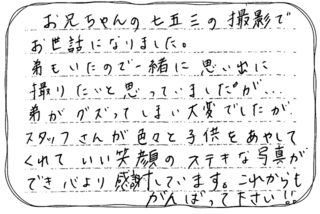 お兄ちゃんの七五三の撮影で
お世話になりました。
弟もいたので一緒に思い出に
撮りたいと思っていましたが...
弟がグズってしまい大変でしたが、
スタッフさんが色々と子供をあやして
くれていい笑顔のステキな写真が
でき心より感謝しています。これからも
がんばって下さい!!